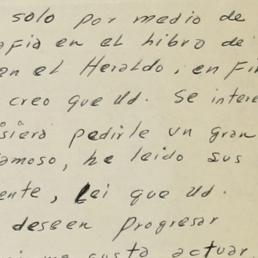 solo por medio de
afia en el libro de
en el Heraldo, en Fi
creo que Ud. se intere
siera pedirle un gran
famoso, he leido sus
ente, Lei que Ud.
deseen progresar
me gusta actuar